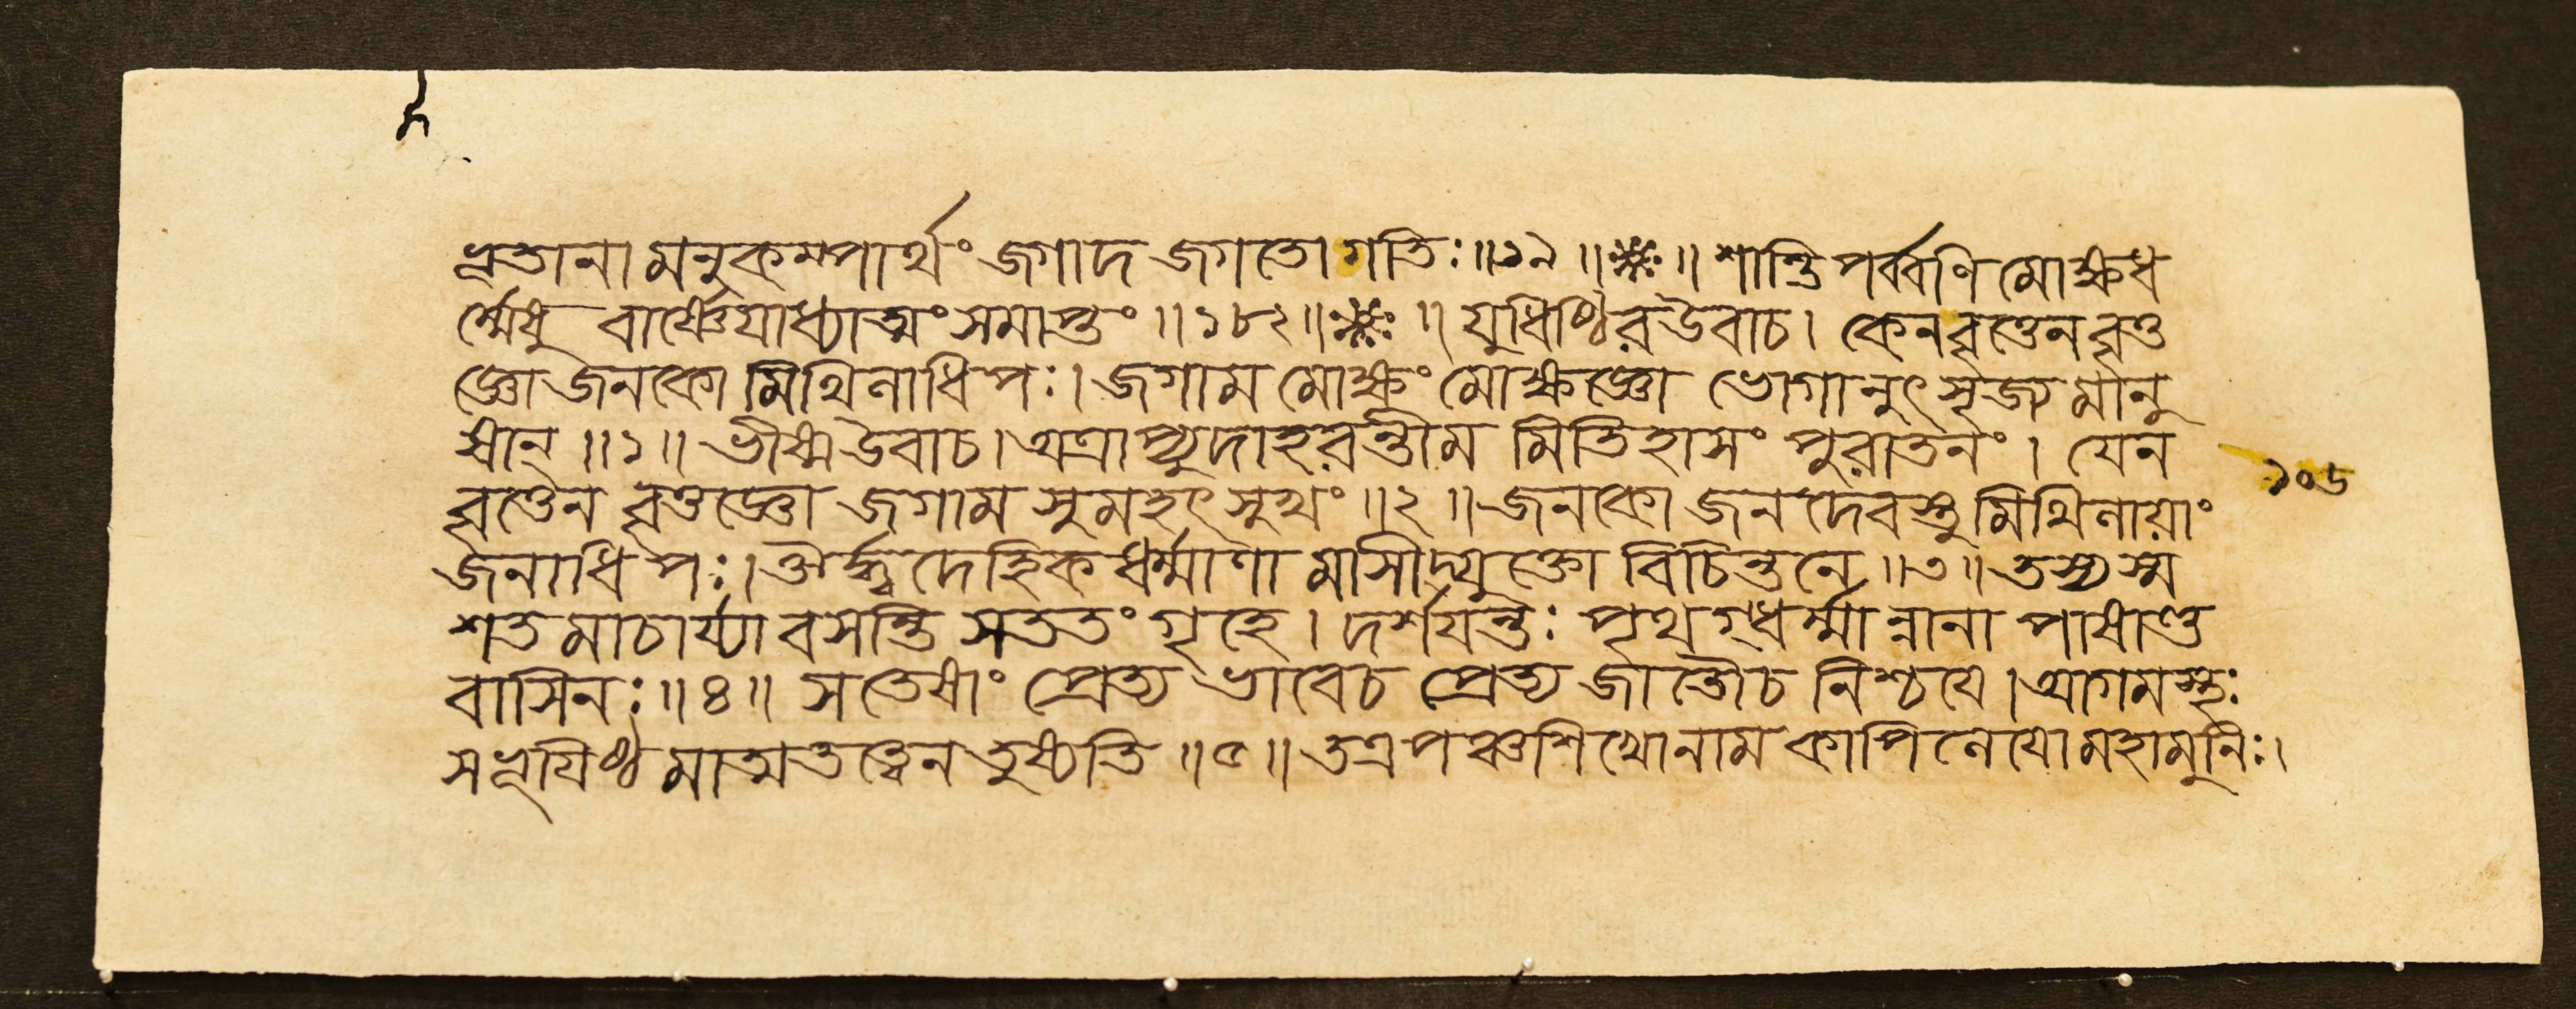 ভূতানামনুকম্পার্থং জগাদ জগতো গতিঃ॥১৯॥❋॥শান্তিপর্ব্বণি মোক্ষধ
র্ম্মেষু বার্ষ্ণেয়াধ্যাত্মং সমাপ্তং॥১৮২॥❋॥যুধিষ্ঠির উবাচ। কেন বৃত্তেন বৃত্ত
জ্ঞো জনকো মিথিলাধিপঃ। জগাম মোক্ষং মোক্ষজ্ঞো ভোগানুৎসৃজ্য মানু
ষান্॥১॥ভীষ্ম উবাচ। অত্রাপ্যুদাহরন্তীমমিতিহাসং পুরাতনং। যেন
বৃত্তেন বৃত্তজ্ঞো জগাম সুমহৎ সুখং॥২॥জনকো জনদেবস্তু মিথিলায়াং
জনাধিপঃ। ঔর্দ্ধ্বদেহিকধর্ম্মাণামাসীদ্যুক্তো বিচিন্তনে॥৩॥তস্য স্ম
শতমাচার্য্যা বসন্তি সততং গৃহে। দর্শয়ন্তঃ পৃথগ্ধর্ম্মান্নানাপাষাণ্ড
বাসিনঃ॥৪॥স তেষাং প্রেত্যভাবে চ প্রেত্য জাতৌ চ নিশ্চয়ে। আগমস্থঃ
স ভূয়িষ্ঠমাত্মতত্ত্বেন তুষ্যতি॥৫॥তত্র পঞ্চশিখো নাম কাপিলেয়ো মহামুনিঃ।
১০৬